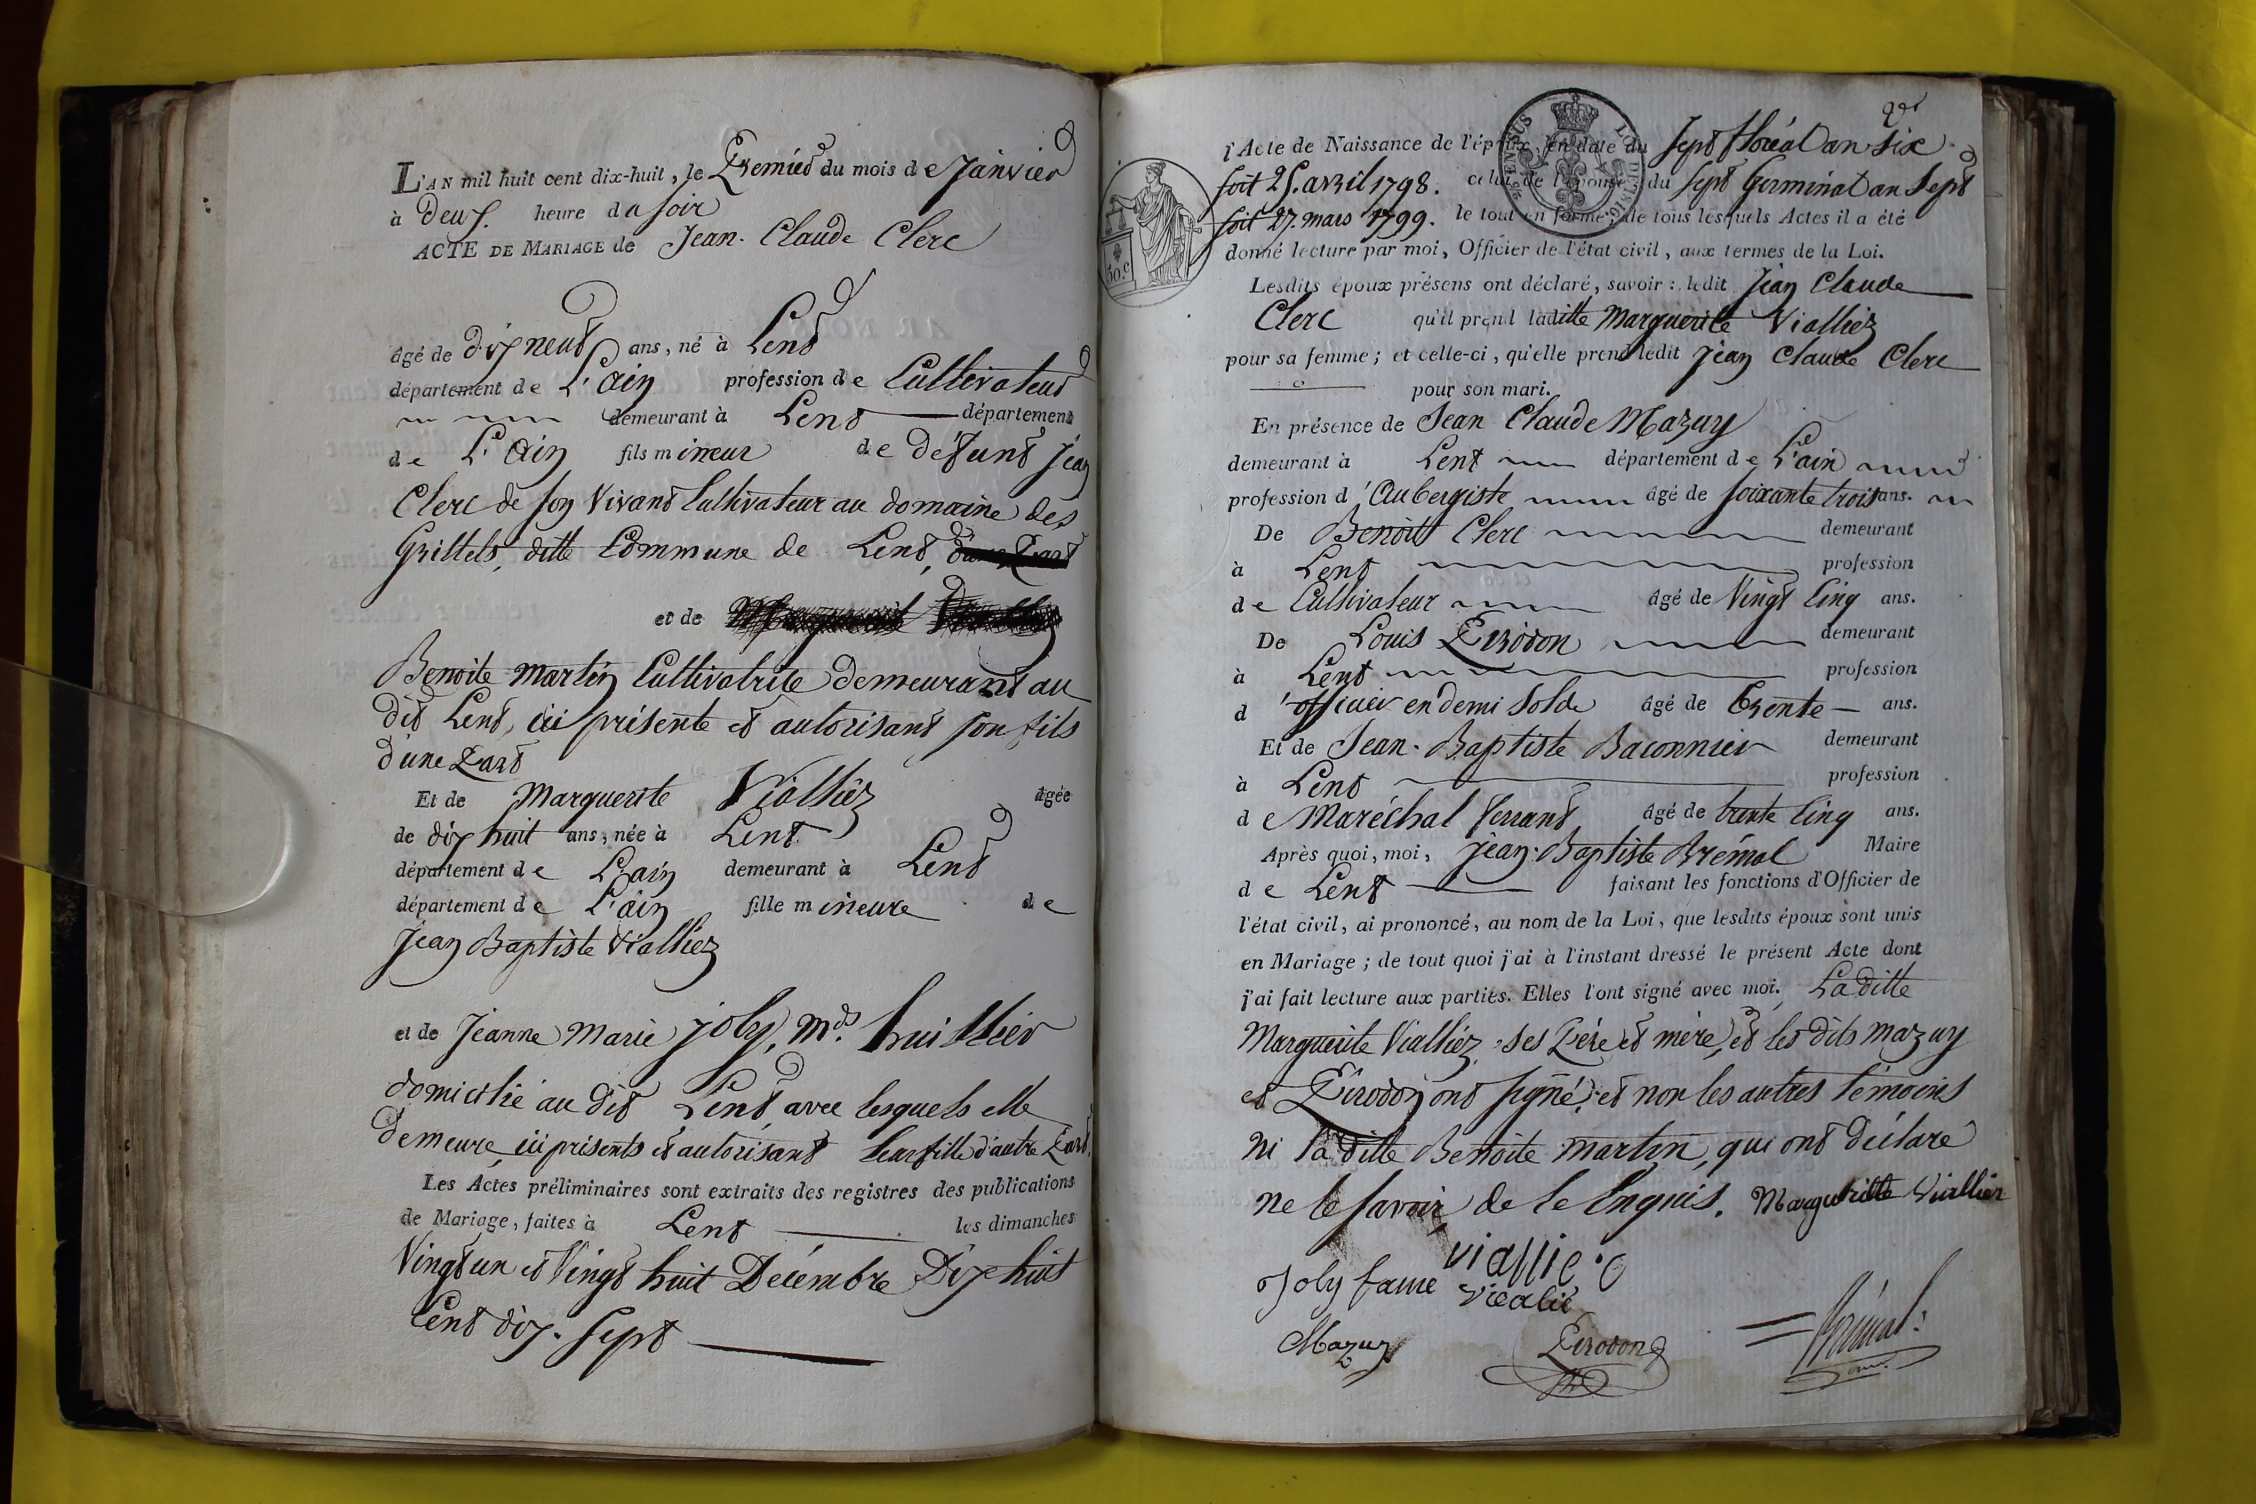 L'AN mil huit cent dix-huit, le Premier du mois de Janvier
à Deux heure du soir
ACTE DE MARIAGE de Jean-Claude Clerc
âgé de dix neuf ans, né à Lent
département de L'ain profession de Cultivateur
demeurant à Lent département
de L'Ain fils mineur de défunt Jean
Clerc de son vivant Cultivateur au domaine des
Grillets, ditte Commune de Lent,
et de
Benoite martin Cultivatrice demeurant au
dit Lent, ici présente et autorisant son fils
d'une Part
Et de Marguerite Vialliez âgée
de dix huit ans, née à Lent
département de L'ain demeurant à Lent
département de L'ain fille mineure de
Jean Baptiste Vialliez
et de Jeanne Marie joly, mds. huillier
domicilié au dit Lent, avec lesquels elle
demeure, ici présents et autorisant leur fille d'autre Part,
Les Actes préliminaires sont extraits des registres des publications
de Mariage, faites à Lent les dimanches
Vingt un et Vingt huit Décembre Dix huit
Cent dix-sept
l'Acte de Naissance de l'époux, en date du sept floréal an six
soit 25. avril 1798. celui de l'épouse, du sept Germinal an sept
soit 27. mars 1799. le tout en forme; de tous lesquels Actes il a été
donné lecture par moi, Officier de l'état civil, aux termes de la Loi.
30.c
Lesdits époux présens ont déclaré, savoir : ledit Jean Claude
Clerc qu'il prend laditte Marguerite Vialliez
pour sa femme ; et celle-ci, qu'elle prend ledit Jean Claude Clerc
pour son mari.
En présence de Jean Claude Mazuy
demeurant à Lent département de L'ain
profession d'Aubergiste âgé de soixante trois ans.
De Benoitt Clerc demeurant
à Lent profession
de Cultivateur âgé de Vingt Cinq ans.
De Louis Pirodon demeurant
à Lent profession
d'officier en demi solde âgé de Trente ans.
Et de Jean-Baptiste Baconnier demeurant
à Lent profession
de Maréchal ferrant âgé de trente Cinq ans.
Après quoi, moi, Jean-Baptiste Brémal Maire
de Lent faisant les fonctions d'Officier de
l'état civil, ai prononcé, au nom de la Loi, que lesdits époux sont unis
en Mariage ; de tout quoi j'ai à l'instant dressé le présent Acte dont
j'ai fait lecture aux parties. Elles l'ont signé avec moi. Laditte
Marguerite Vialliez, ses Père et mère, et les dits mazuy
et Pirodon ont signé, et non les autres témoins
ni la ditte Benoite martin, qui ont déclaré
ne le savoir, de ce Enquis. Margueritte Viallier
Joly fame Viallié
Vialié
Mazuy Pirodon Brémal